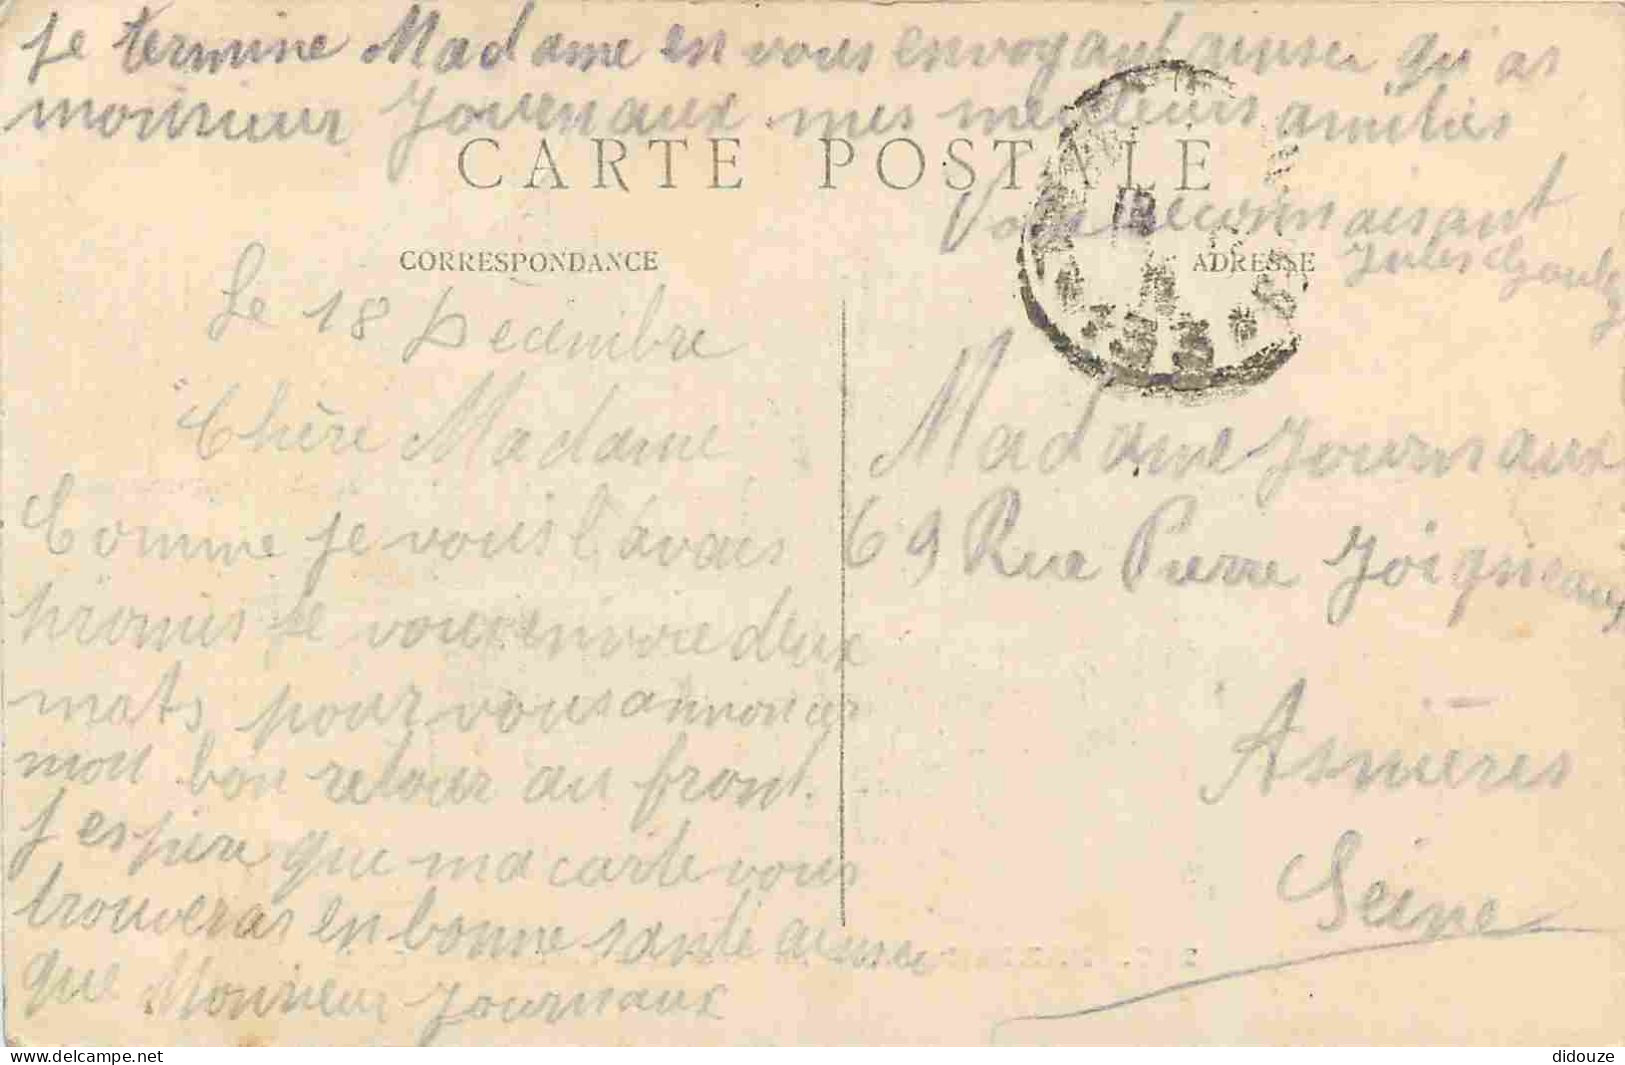 je termine Madame en vous envoyant ainsi qu'as
monsieur Journaux mes meilleurs amitiés
CARTE POSTALE
Votre Reconnaissant
Jules
CORRESPONDANCE
ADRESSE
Le 18 Décembre
Chère Madame
Comme je vous l'avais
promis je vous envoie deux
mots pour vous annoncer
mon bon retour au front.
J espère que ma carte vous
trouveras en bonne santé ainsi
que Monsieur Journaux
Madame Journaux
69 Rue Pierre Joigneaux
Asnieres
Seine
delcampe.net
didouze